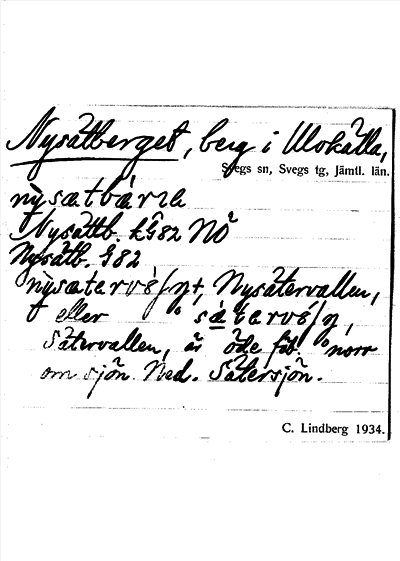 Nysätberget, berg i Ulvkälla,
Svegs sn, Svegs tg, Jämtl. län.
nysætbærre
Nysättb. kG82 NÖ
Nysätb. G82
Nysätervallen,
eller
Sätervallen, är öde fäb. norr
om sjön Ned. Sätersjön.
C. Lindberg 1934.